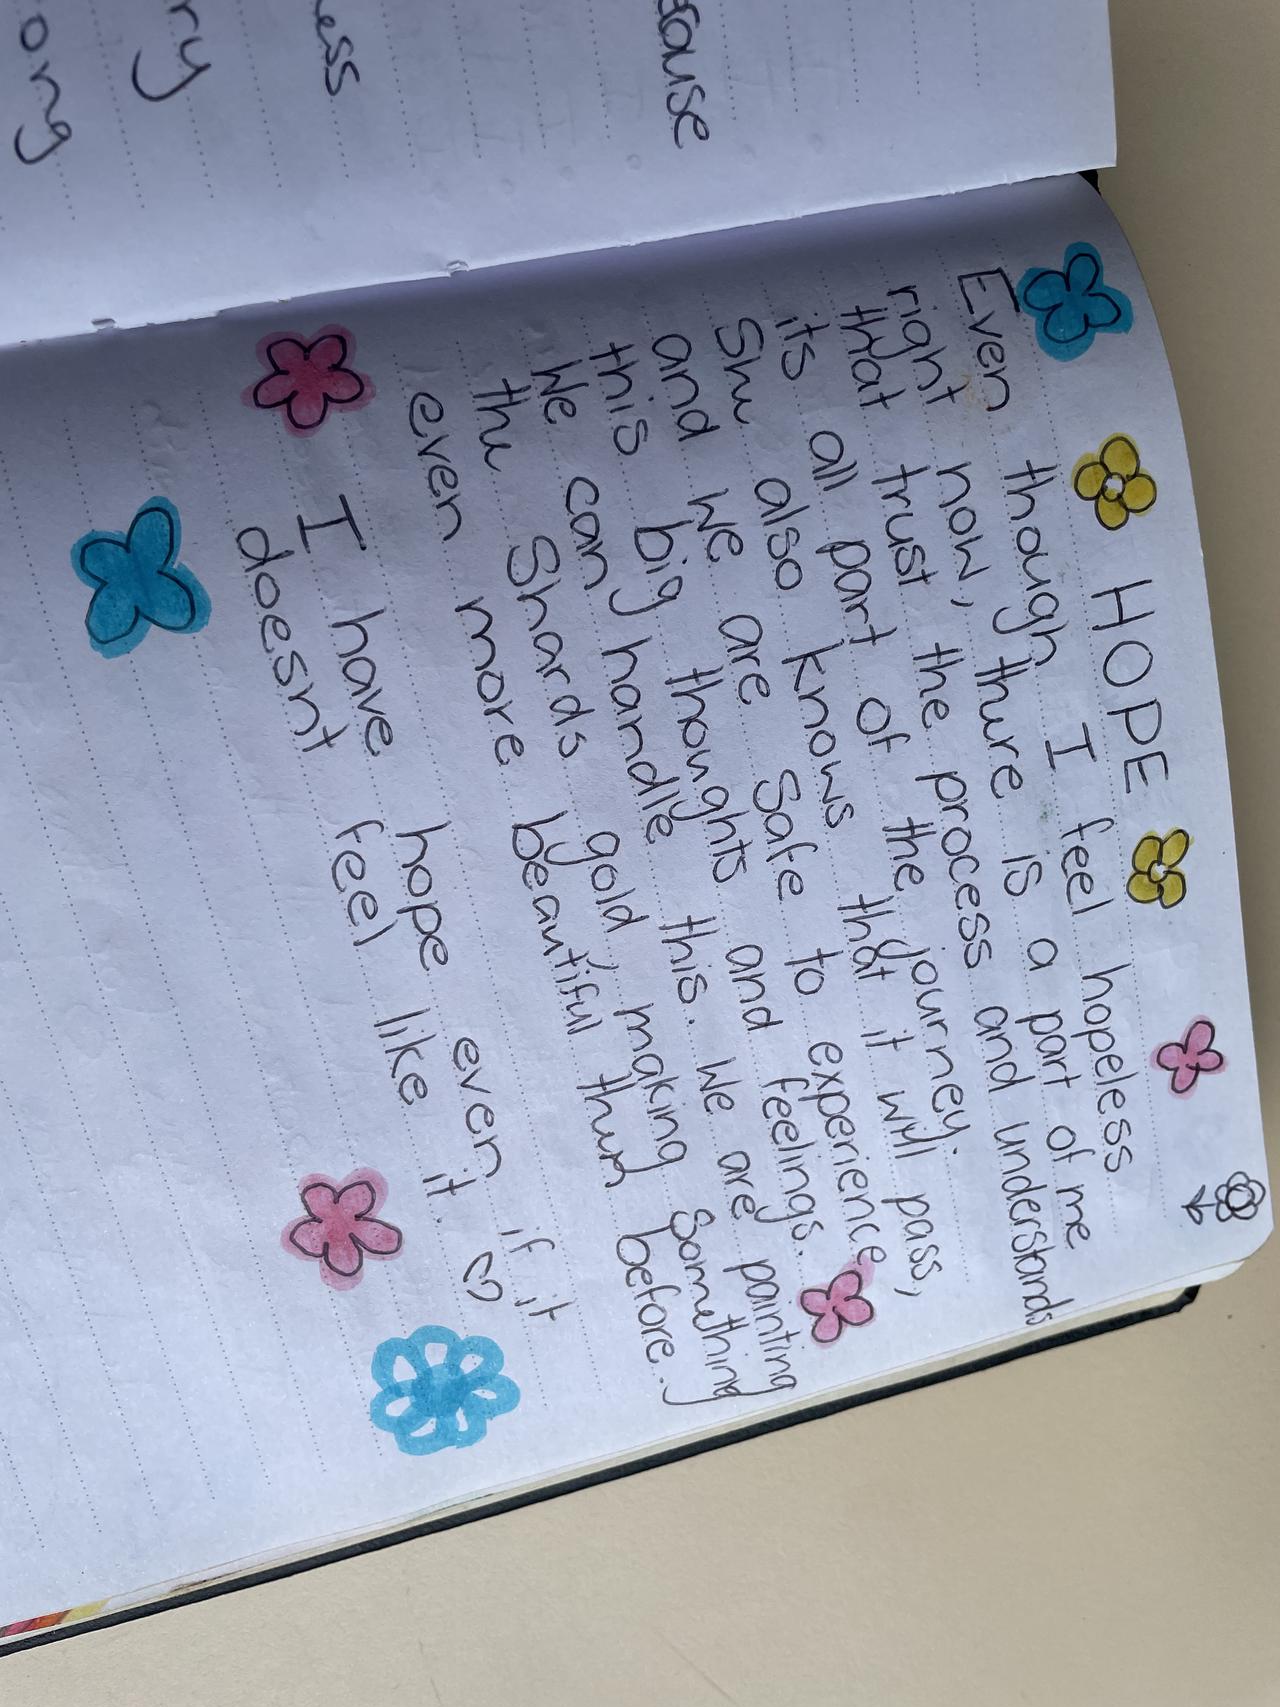 ong
ry
ess
cause
HOPE
Even though I feel hopeless
right now, there is a part of me
that trust the process and understands
its all part of the journey.
She also knows that it will pass,
and we are Safe to experience
this big thoughts and feelings.
We can handle this. We are painting
the Shards gold, making Something
even more beautiful than before.
I have hope even if it
doesn't feel like it.